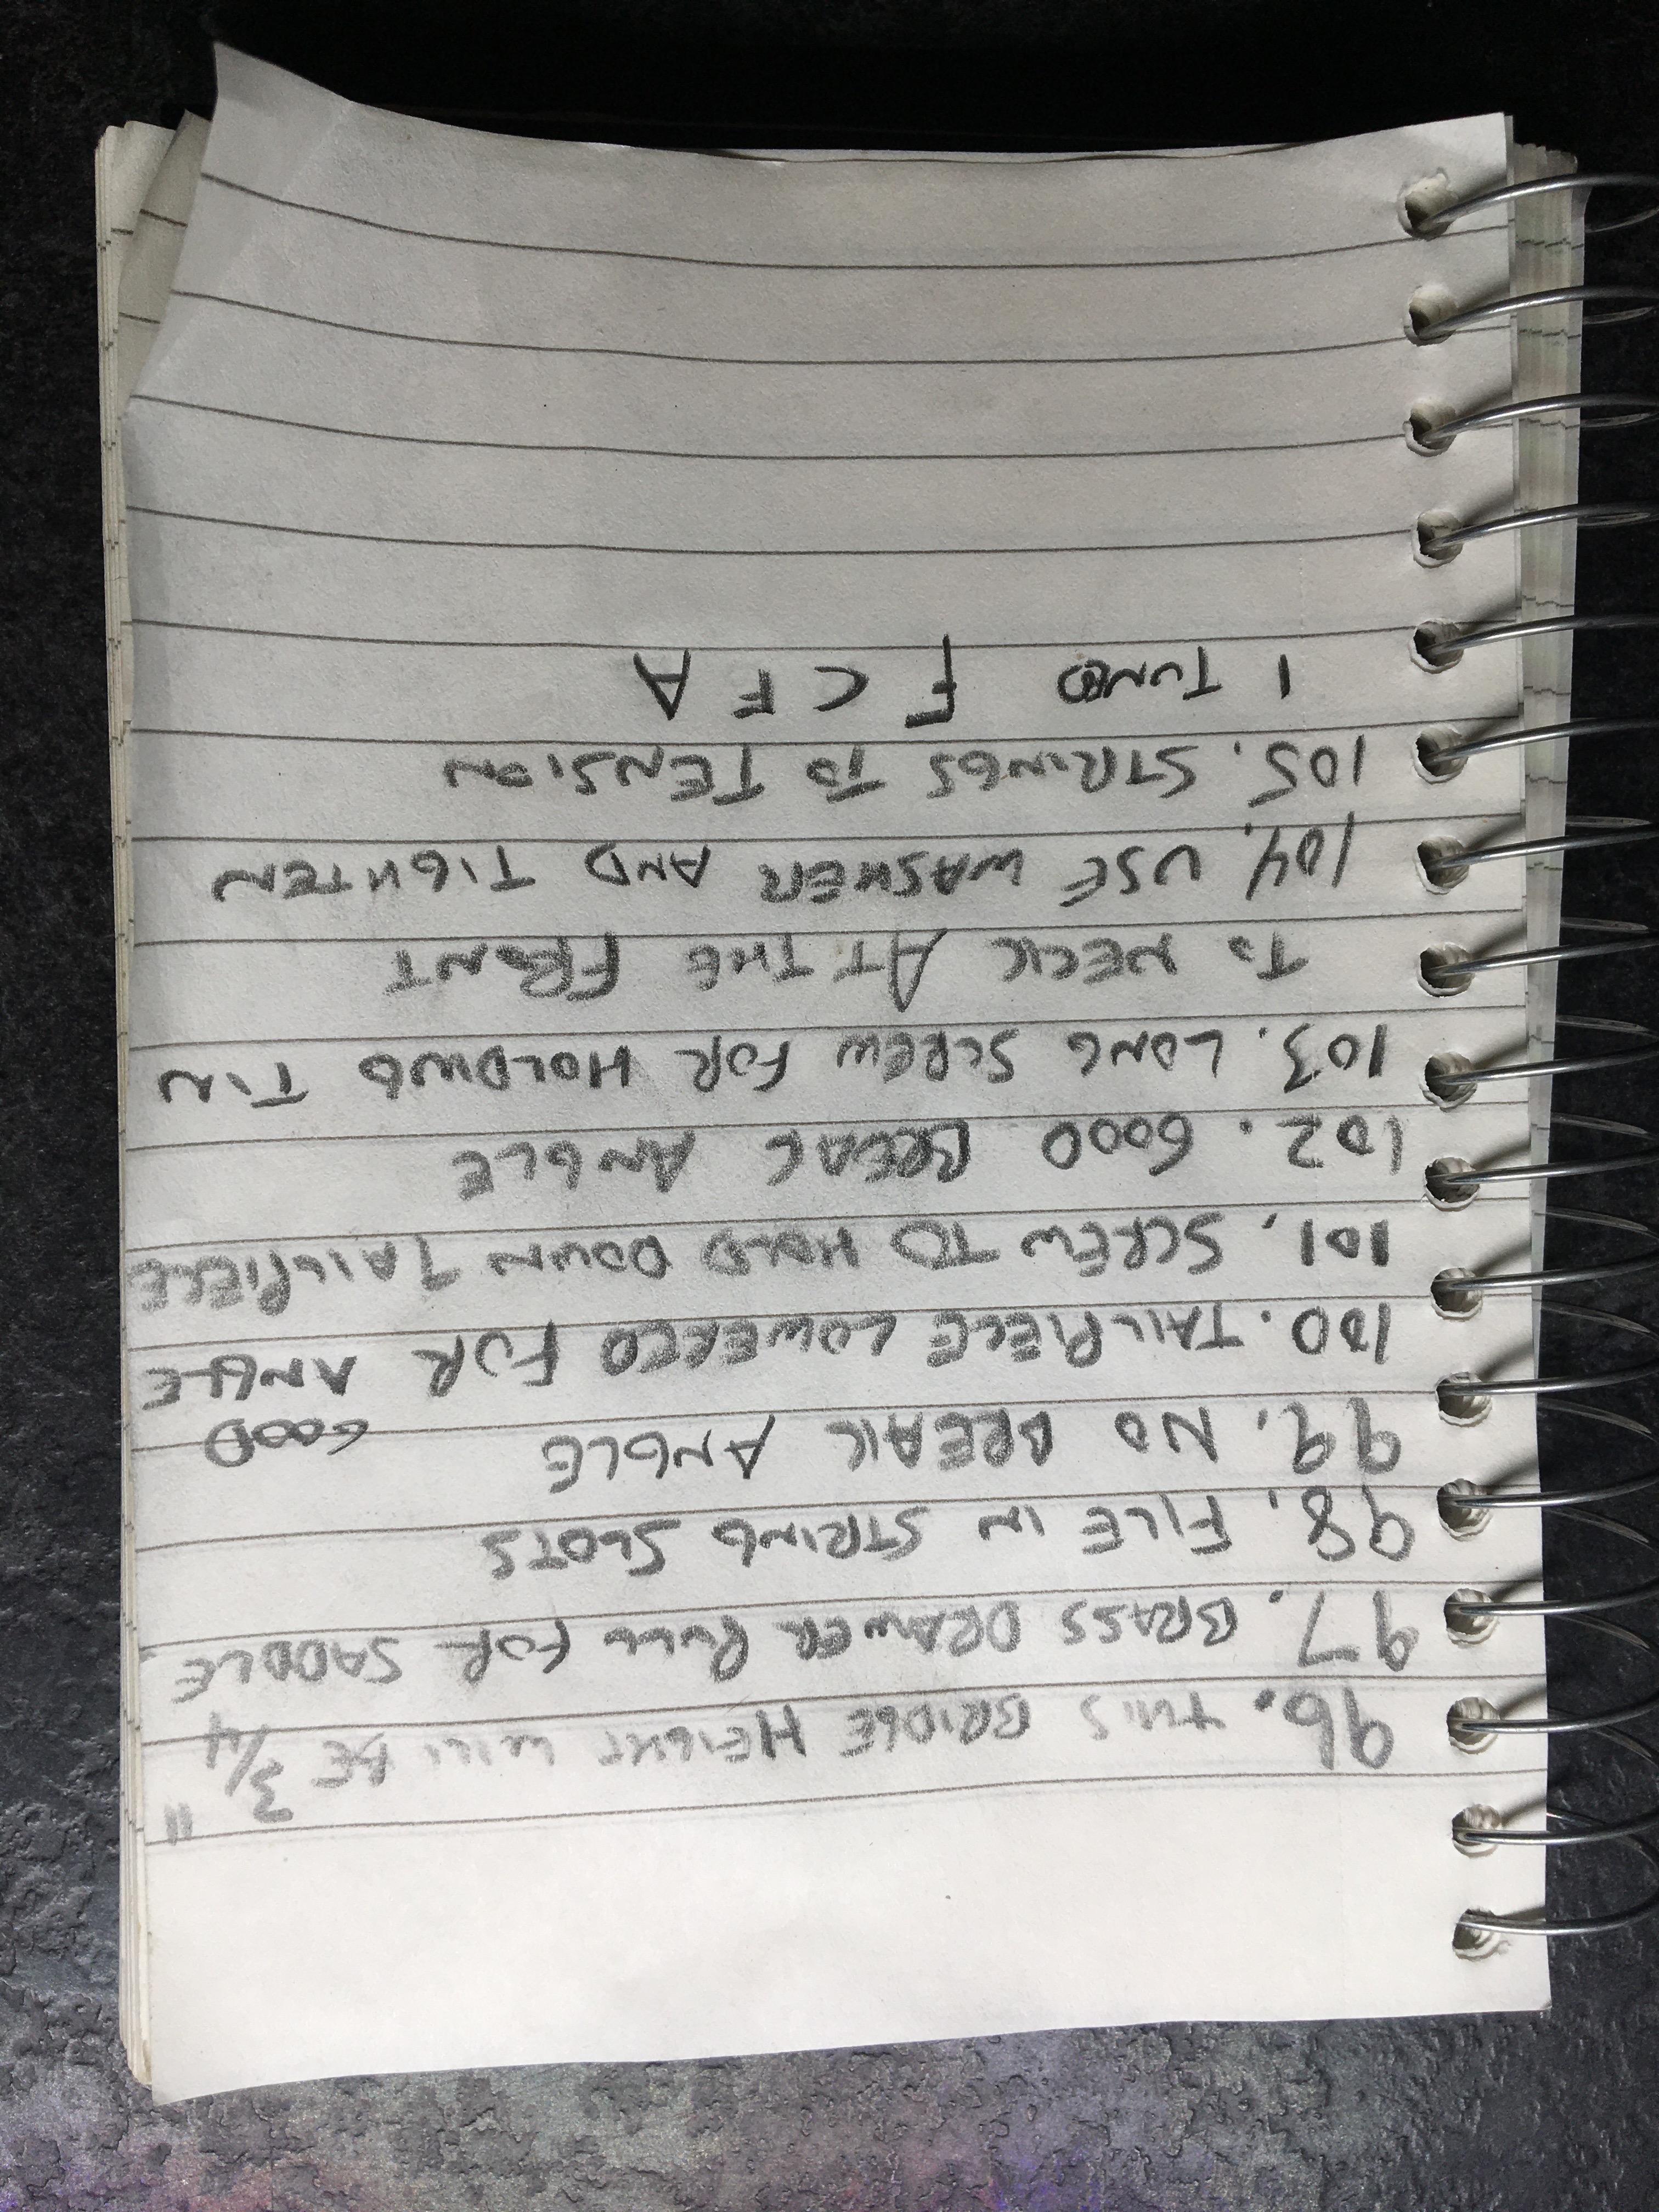 96. THIS BRIDGE HEIGHT WILL BE 3/4"
97. BRASS DRAWER PULL FOR SADDLE
98. FILE IN STRING SLOTS
99. NO BREAK ANGLE GOOD
100. TAILPIECE LOWERED FOR ANGLE
101. SCREW TO HOLD DOWN TAILPIECE
102. GOOD BREAK ANGLE
103. LONG SCREW FOR HOLDING TIN
TO NECK AT THE FRONT
104. USE WASHER AND TIGHTEN
105. STRINGS TO TENSION
I TUNED F C F A